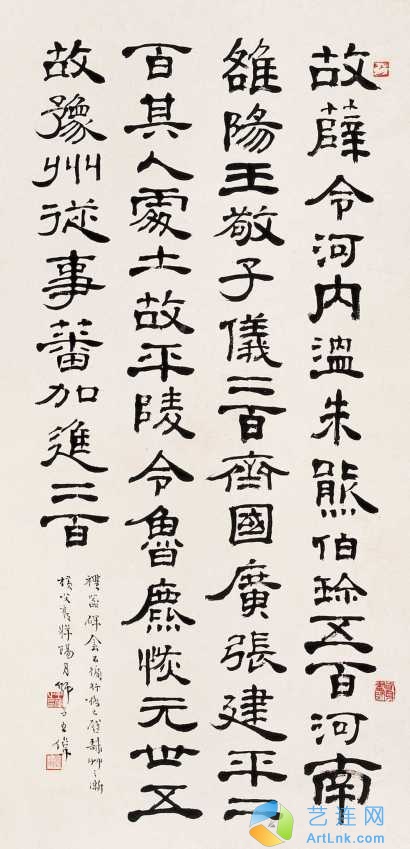 故薛令河内溫朱熊伯珍五百河南
雒陽王敬子儀三百齊國廣張建平二
百其人處土故平陵令魯麃恢元世五
故豫州從事蕃加進三百
禮器碑
艺连网
ArtLnk.com